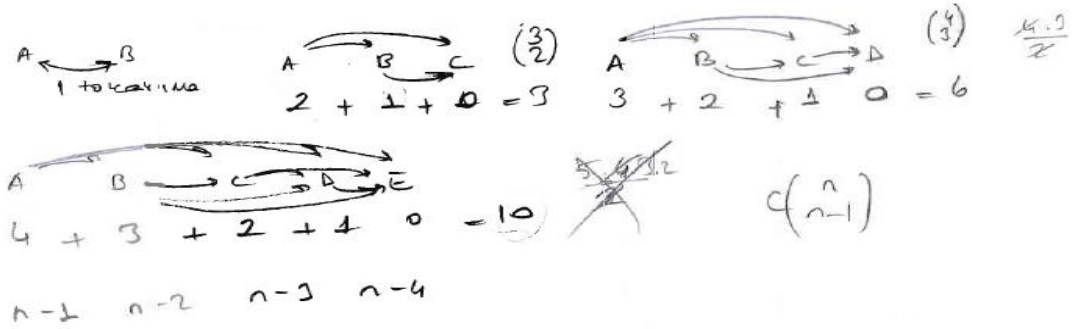 A B
1 tokalaşma
A B C (3 2)
2 + 1 + 0 = 3
A B C D (4 3) 4.3/2
3 + 2 + 1 0 = 6
A B C D E
4 + 3 + 2 + 1 0 = 10
C(n n-1)
n-1 n-2 n-3 n-4